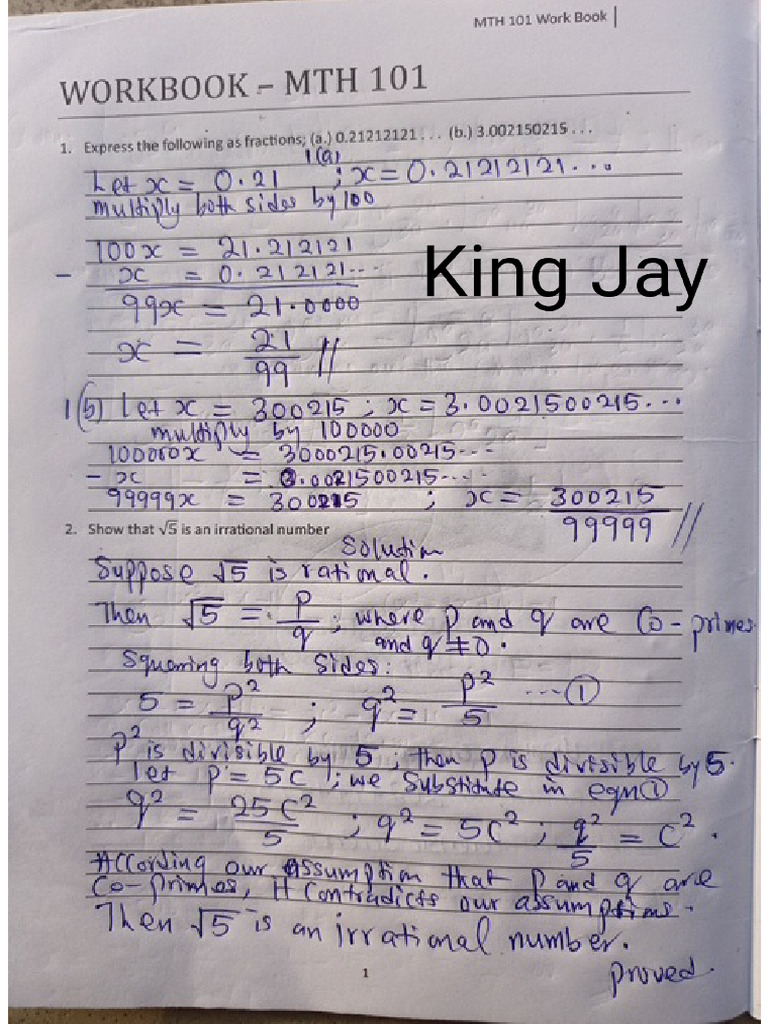 MTH 101 Work Book
WORKBOOK – MTH 101
1. Express the following as fractions; (a.) 0.21212121 . . . (b.) 3.002150215 . . .
1(a)
Let x = 0.21 ; x = 0.21212121...
multiply both sides by 100
100x = 21.212121
- x = 0.212121...
King Jay
99x = 21.0000
x = 21/99 //
1(b) Let x = 300215 ; x = 3.0021500215...
multiply by 100000
100000x = 3000215.00215...
- x = 3.0021500215....
99999x = 300215 ; x = 300215/99999 //
2. Show that √5 is an irrational number
Solution
Suppose √5 is rational.
Then √5 = p/q ; where p and q are Co-primes
and q ≠ 0.
Squaring both sides:
5 = p²/q² ; q² = p²/5 ---①
p² is divisible by 5 ; then p is divisible by 5.
let p = 5c ; we substitute in eqn①
q² = 25c²/5 ; q² = 5c² ; q²/5 = c².
According our assumption that p and q are
Co-primes, it contradicts our assumptions.
Then √5 is an irrational number.
proved.
1